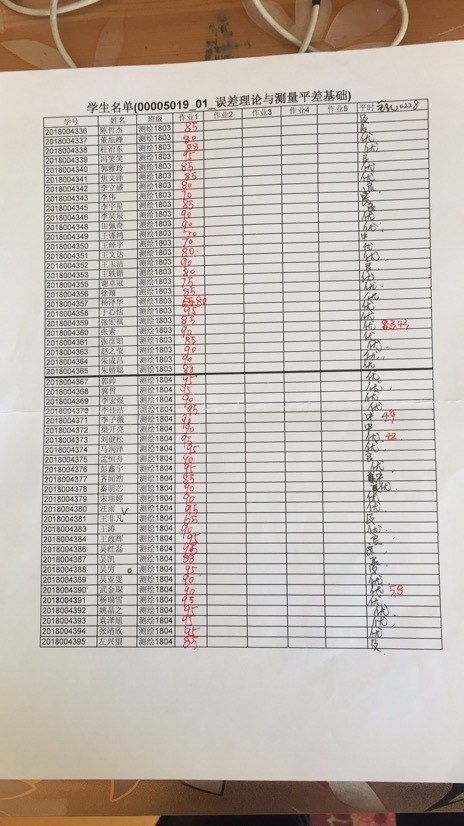 学生名单(00005019_01_误差理论与测量平差基础)
学号 姓名 班级 作业1 作业2 作业3 作业4 作业5 平时
2018004336 陈哲杰 测绘1803 85 良
2018004337 董旭峰 测绘1803 80 良
2018004338 杜治东 测绘1803 88 优
2018004339 冯笑笑 测绘1803 95 优
2018004340 郭雅玲 测绘1803 85 良
2018004341 焦文泽 测绘1803 85 优
2018004342 李立盛 测绘1803 80 优
2018004343 李伟 测绘1803 70 良
2018004345 李宇星 测绘1803 85
2018004346 李昊辰 测绘1803 90 良
2018004348 田佩奇 测绘1803 90 优
2018004349 王谨鸿 测绘1803 70 优
2018004350 王经宇 测绘1803 70 中
2018004351 王文达 测绘1803 80 优
2018004352 王玉洁 测绘1803 90 优
2018004353 王轶锴 测绘1803 80 良
2018004355 谢卓冠 测绘1803 75 优
2018004356 徐翔 测绘1803 85 优
2018004357 杨泽华 测绘1803 80 优
2018004358 于心恬 测绘1803 95 优
2018004359 张宏祺 测绘1803 85 优
2018004360 张素 测绘1803 90 优
2018004361 张彦阳 测绘1803 85 优
2018004363 赵之莹 测绘1803 90 优
2018004364 朱成昌 测绘1803 90 优
2018004365 朱婧聪 测绘1803 88 优
2018004367 郭帅 测绘1804 95 优
2018004368 冀哲 测绘1804 95 优
2018004369 李宏煜 测绘1804 90 优
2018004370 李佳洁 测绘1804 95 优
2018004371 李子薇 测绘1804 90 中 49
2018004372 梁开亮 测绘1804 90 中
2018004373 刘健松 测绘1804 95 优
2018004374 马润泽 测绘1804 95 优
2018004375 孟恒舟 测绘1804 90 良
2018004376 彭鑫宇 测绘1804 95 优
2018004377 齐闻浩 测绘1804 85
2018004378 秦明芯 测绘1804 90 优
2018004379 宋琬婷 测绘1804 90 优
2018004380 汪雨 测绘1804 95 优
2018004381 王非凡 测绘1804 65 良
2018004383 王涛 测绘1804 90 优
2018004384 王政辉 测绘1804 95 良
2018004386 吴红磊 测绘1804 良
2018004387 吴凯 测绘1804 88 良
2018004388 吴穷 测绘1804 95 良
2018004389 吴亚雯 测绘1804 90 优
2018004390 武金琛 测绘1804 90 优 58
2018004391 杨瑞雪 测绘1804 95 优
2018004392 姚晶之 测绘1804 95 优
2018004393 袁泽旭 测绘1804 95 优
2018004394 张靖欣 测绘1804 95 优
2018004395 左兴望 测绘1804 85 良